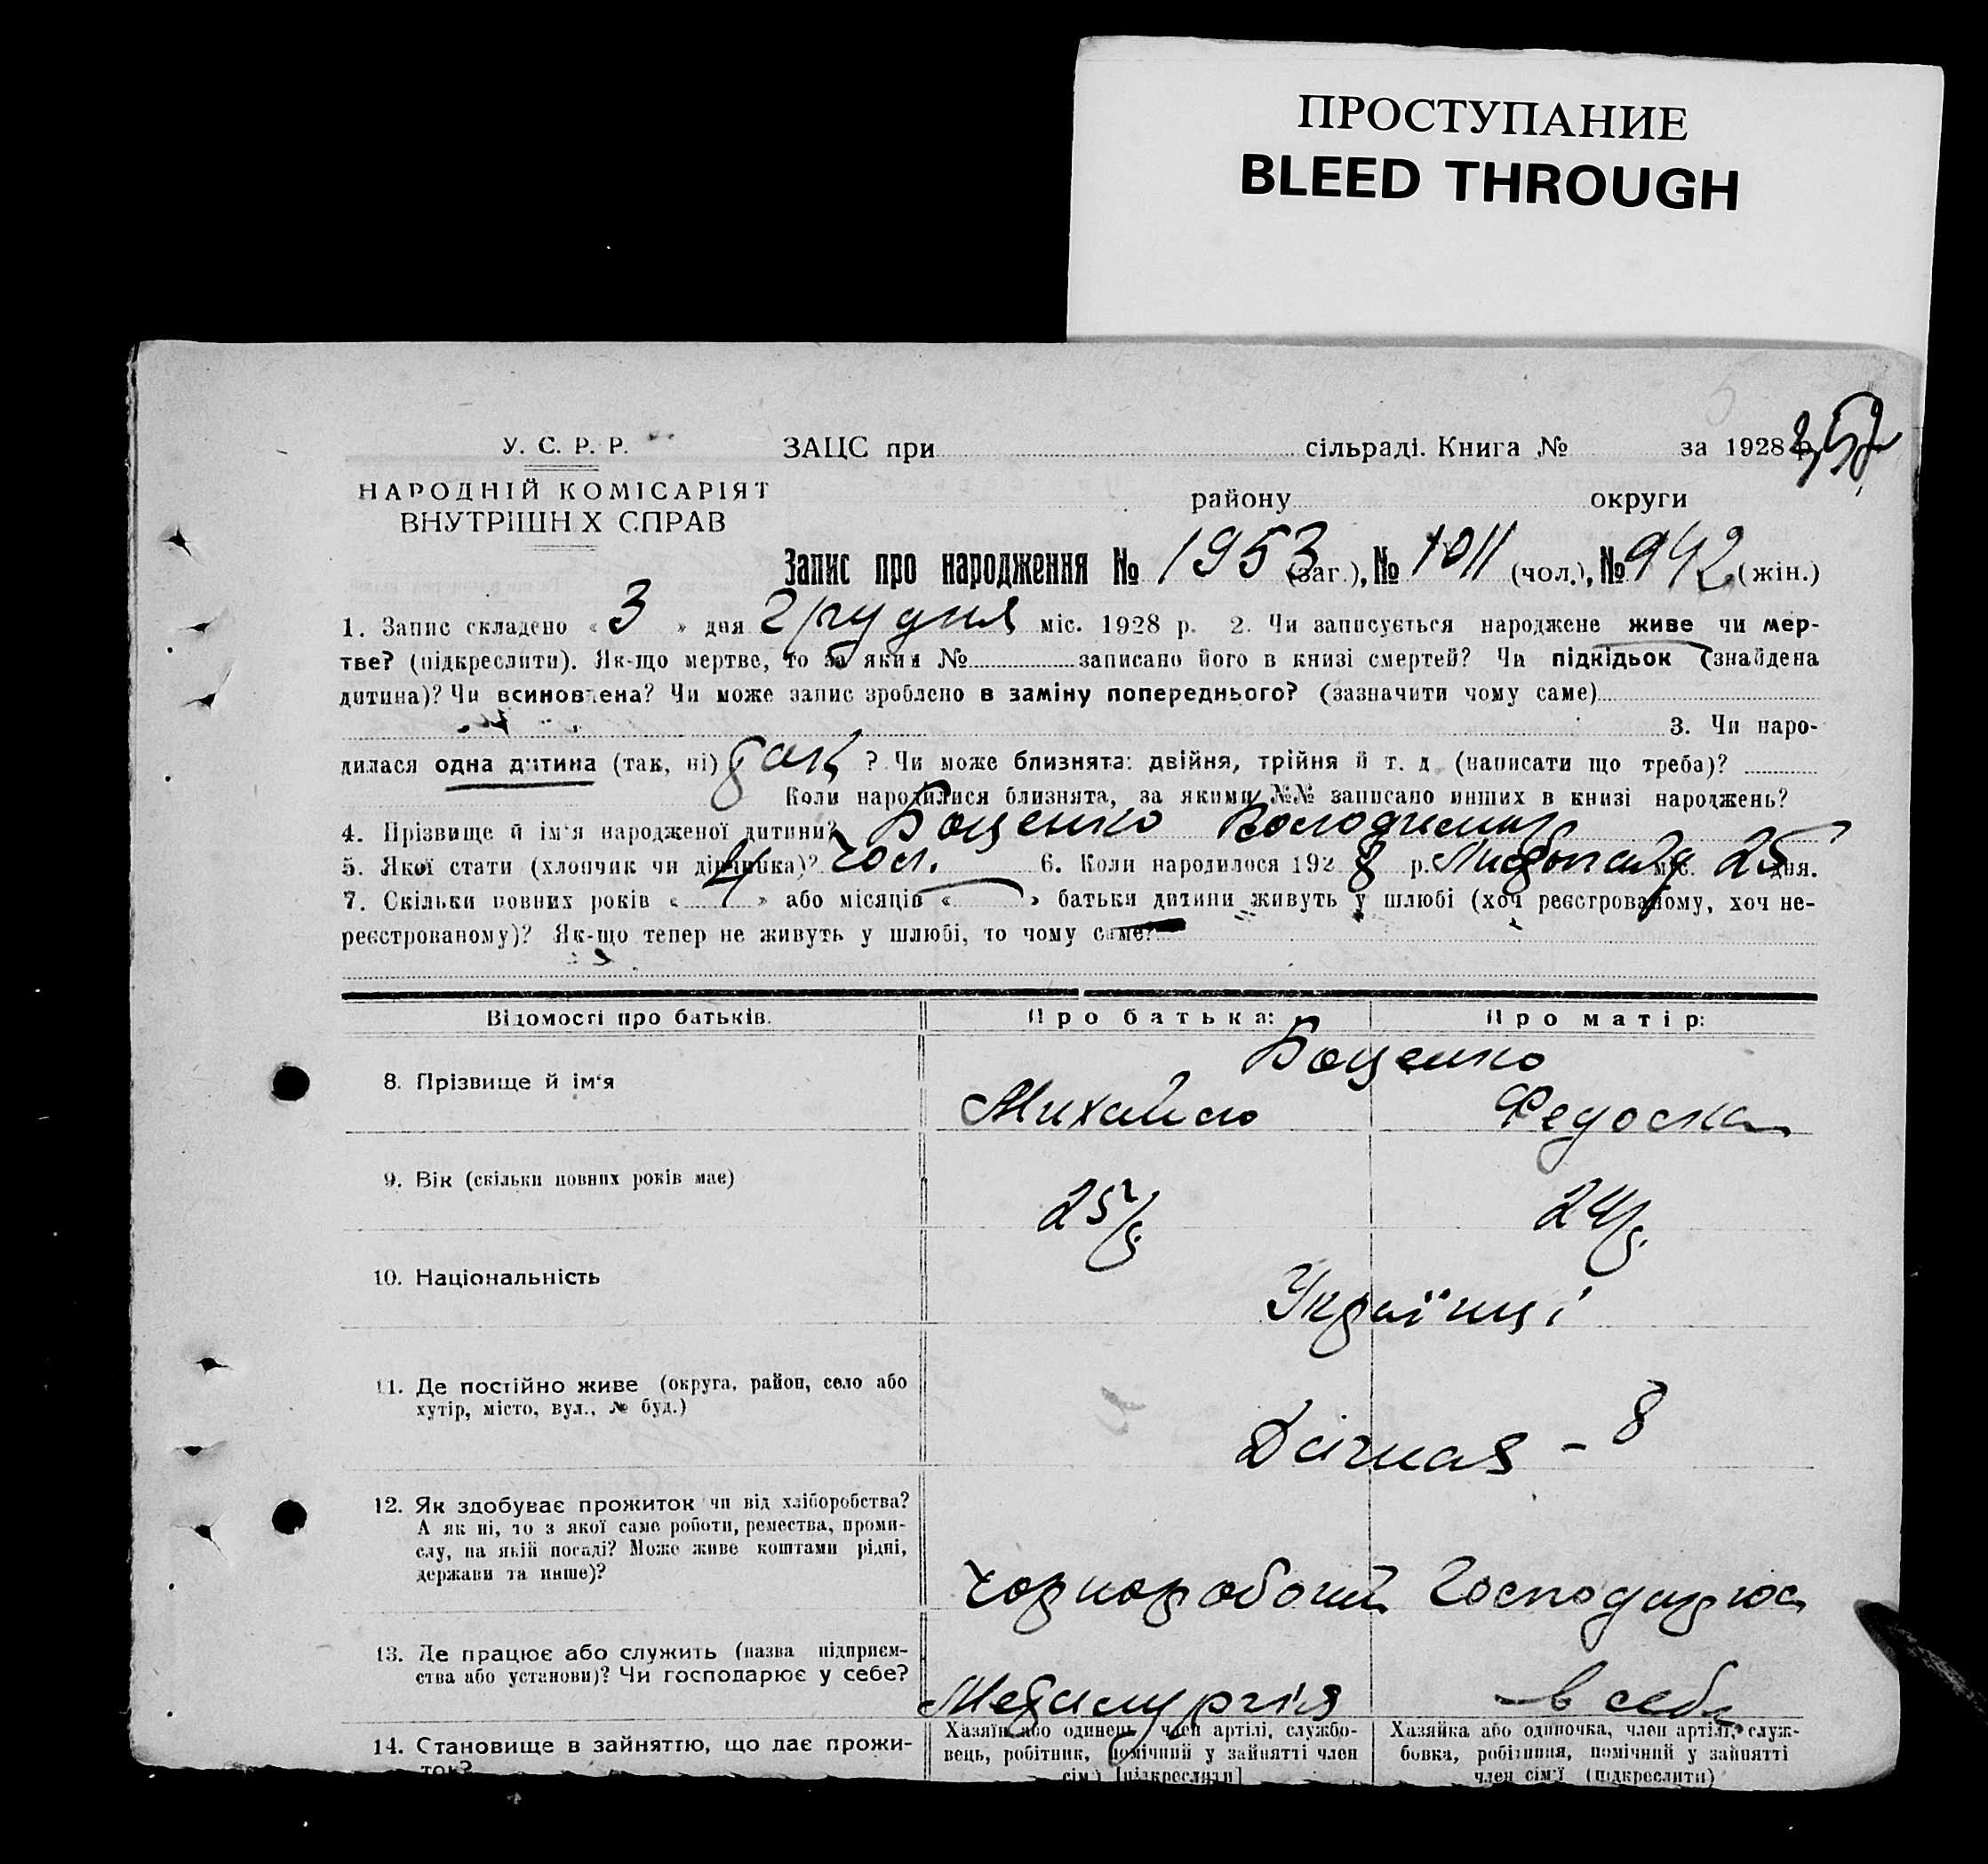 ПРОСТУПАНИЕ
BLEED THROUGH
352
У. С. Р. Р.
НАРОДНІЙ КОМІСАРІЯТ
ВНУТРІШН Х СПРАВ
ЗАЦС при сільраді. Книга № за 1928 р.
району округи
Запис про народження № 1953 (заг.), № 1011 (чол.), № 942 (жін.)
1. Запис складено « 3 » дня Грудня міс. 1928 р. 2. Чи записується народжене живе чи мер-
тве? (підкреслити). Як-що мертве, то за яким № записано його в книзі смертей? Чи підкідьок (знайдена
дитина)? Чи всиновлена? Чи може запис зроблено в заміну попереднього? (зазначити чому саме)
3. Чи наро-
дилася одна дитина (так, ні) так ? Чи може близнята: двійня, трійня й т. д. (написати що треба)?
Коли народилися близнята, за якими №№ записано инших в книзі народжень?
4. Прізвище й ім‘я народженої дитини? Боценко Володимир
5. Якої стати (хлопчик чи дівчинка)? чол. 6. Коли народилося 1928 р. Листопада міс. 25 дня.
7. Скільки повних років « 4 » або місяців « » батьки дитини живуть у шлюбі (хоч реєстрованому, хоч не-
реєстрованому)? Як-що тепер не живуть у шлюбі, то чому саме?
Відомості про батьків. Про батька: Про матір:
Боценко
8. Прізвище й ім‘я Михайло Федоска
9. Вік (скільки повних років має) 25 р. 24 р.
10. Національність Українці
11. Де постійно живе (округа, район, село або
хутір, місто, вул., № буд.)
– 8
12. Як здобуває прожиток чи від хліборобства?
А як ні, то з якої саме роботи, ремества, проми-
слу, на якій посаді? Може живе коштами рідні,
держави та инше)?
Чорноробочий Господарює
13. Де працює або служить (назва підприєм-
ства або установи)? Чи господарює у себе?
Металургія в себе
14. Становище в зайняттю, що дає прожи-
ток?
Хазяїн або одинець, член артілі, службо-
вець, робітник, помічний у зайнятті член
сім‘ї [підкреслити]
Хазяйка або одиночка, член артілі, служ-
бовка, робітниця, помічний у зайнятті
член сім‘ї (підкреслити)